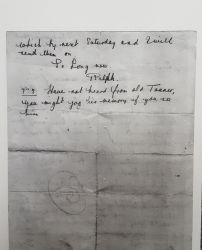 by next Saturday and I will
send them on
So Long now
Ralph.
P.S. Have not heard from old Turner,
you might jog his memory if you see
him